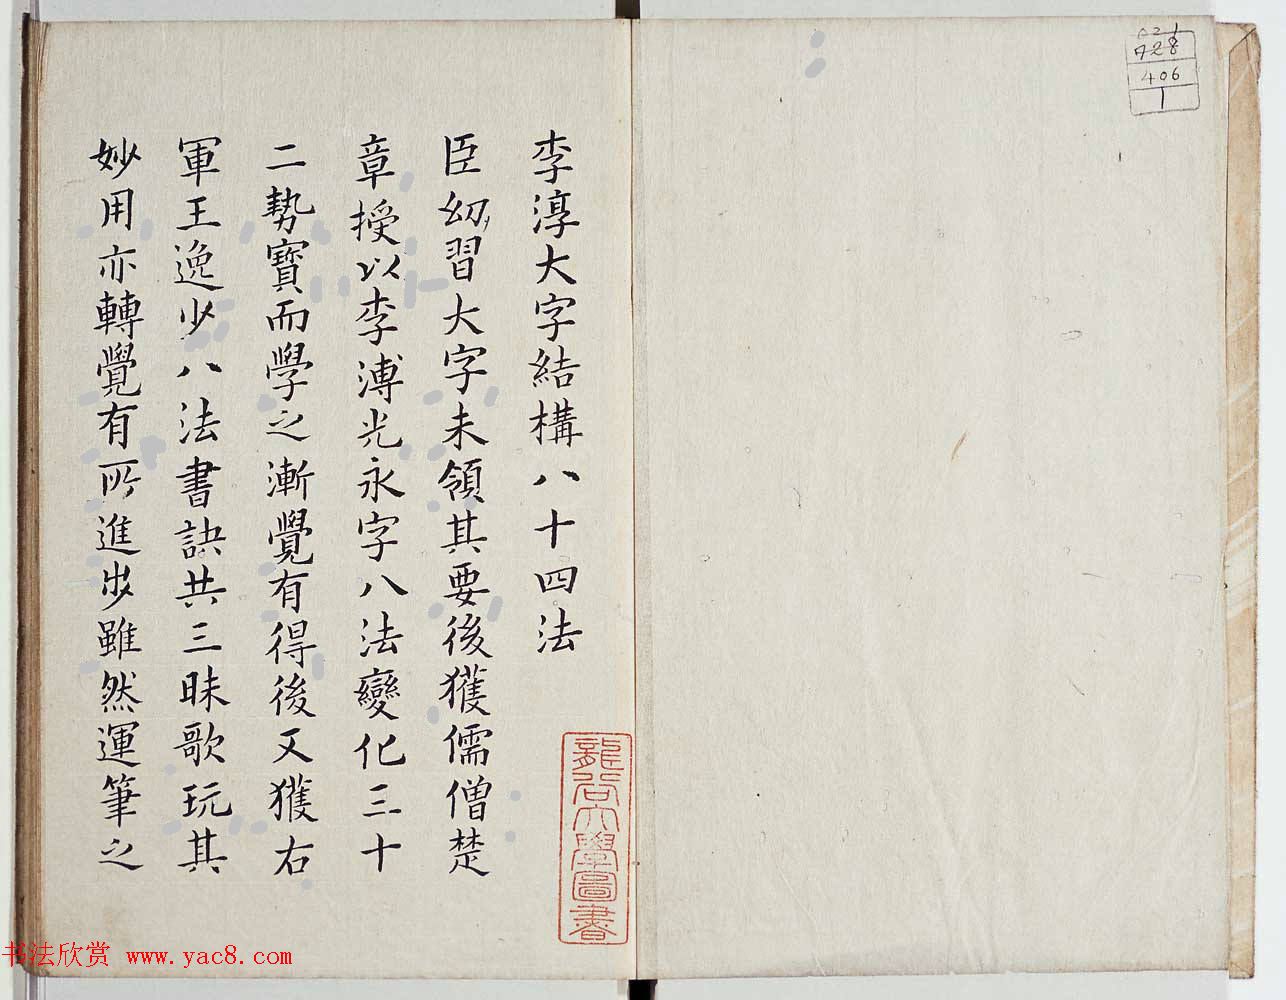 李淳大字結構八十四法
臣幼習大字未領其要後獲儒僧楚
章授以李溥光永字八法變化三十
二勢寳而學之漸覺有得後又獲右
軍王逸少八法書訣共三昧歌玩其
妙用亦轉覺有所進步雖然運筆之
龍谷大學圖書
021
428
406
1
书法欣赏 www.yac8.com